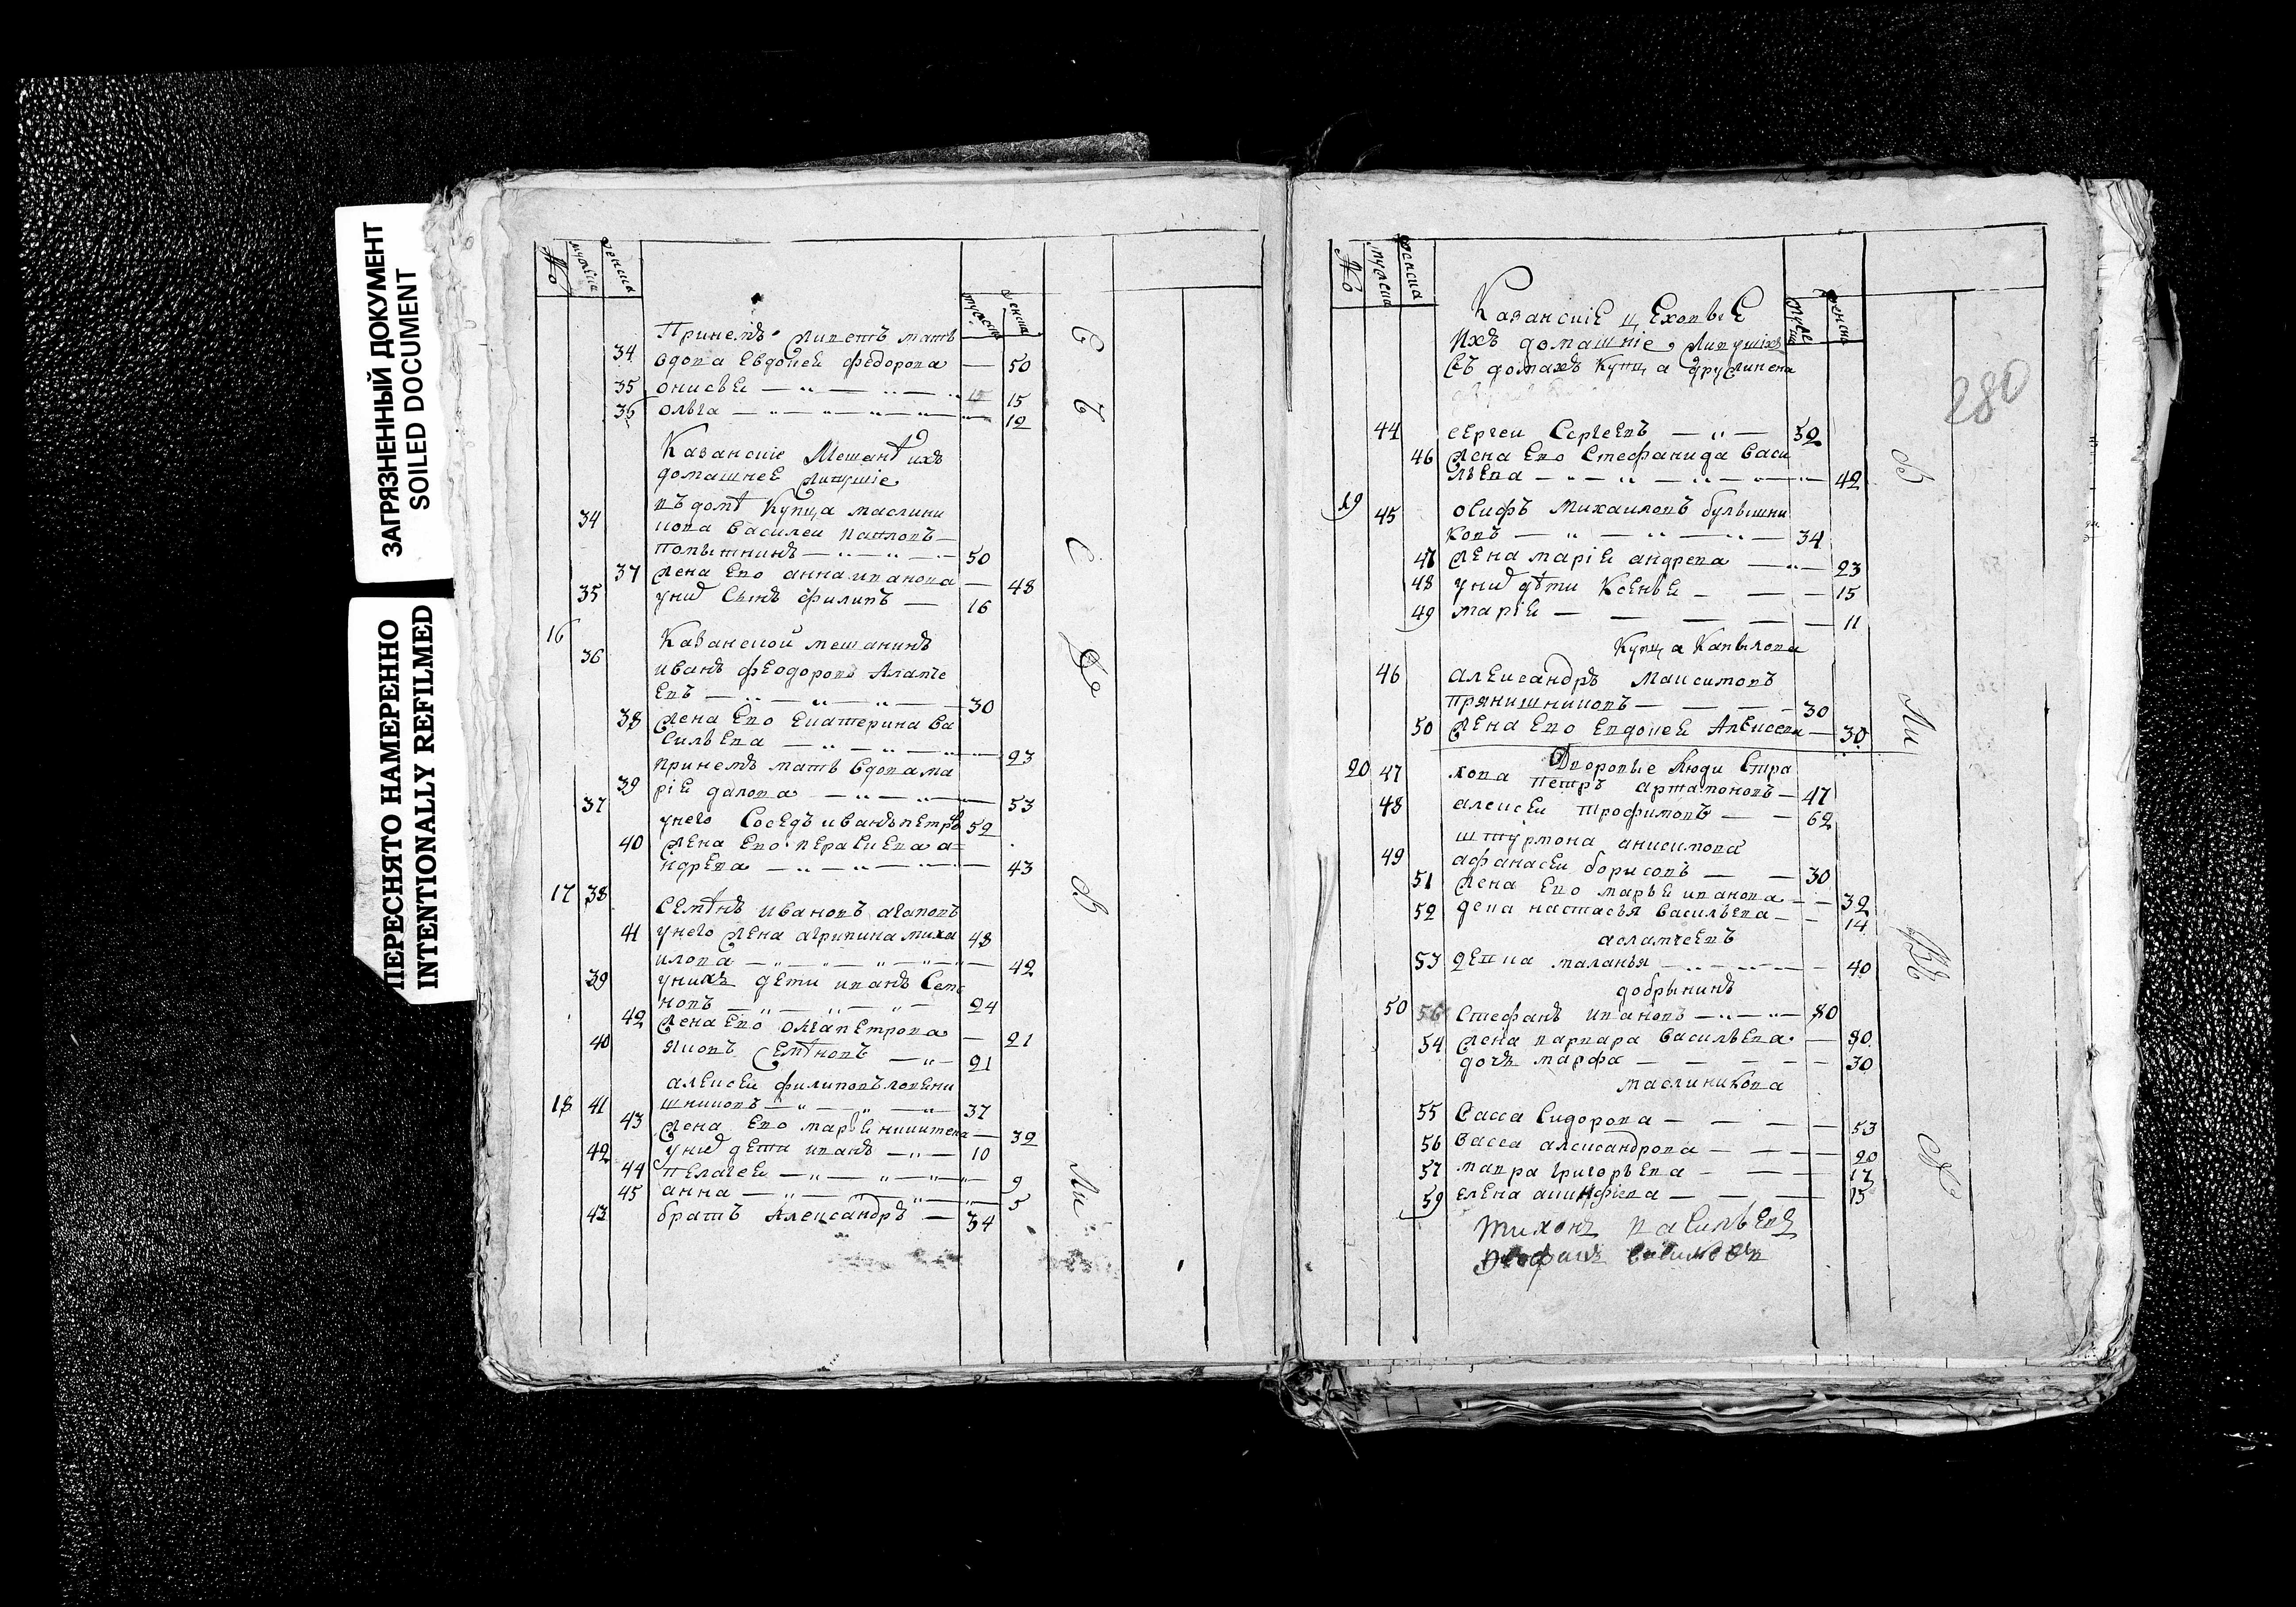 ЗАГРЯЗНЕННЫЙ ДОКУМЕНТ
SOILED DOCUMENT
ПЕРЕСНЯТО НАМЕРЕННО
INTENTIONALLY REFILMED
№ мужеска женска
мужеска женска
Принемъ живетъ мать
34 вдова Евдокеи федорова — 50
35 онисьи — 15
36 ольга — 12
Казанские Мещанѣ ихъ
домашнее живущие
34 въ домѣ Купца маслини
кова василеи павловъ
50
37 жена Ево анна иванова — 48
35 унид сынъ филипъ — 16
16 Казанской мещанинъ
36 иванъ феодоровъ Алапче
Евъ — 30
38 жена Ево Екатерина Ва
сильева — 23
принемъ мать вдова ма
39 ріи — 53
37 унего соседъ иванъ петро 52
40 жена Ево а
ндрева — 43
17 38 семѣнъ ивановъ агаповъ
41 унего жена агрипина миха 48
илова — 42
39 унихъ дети иванъ семе
новъ — 24
42 жена Ево олга петрова — 21
40 яковъ семѣновъ — 21
алексеи филиповъ
18 41 шниковъ — 37
43 жена Ево марьѣ никитена — 32
42 унид дети иванъ — 10
44 пелагеи — 9
45 анна — 5
43 братъ Александръ — 34
Е
Ъ
С
Ли
№ мужеска женска
мужеска женска
Казанскіе цеховые
ихъ домашніе живущіхъ
въ домахъ Купца
280
44 сергеи Сергеевъ — 52
46 жена Ево Стефанида васи
льева — 42
19 45 осифъ михаиловъ булышни
ковъ — 34
47 жена маріи андрева — 23
48 унид дѣти Ксеньи — 15
49 маріи — 11
Купца Капылова
46 александръ Максимовъ
прянишниковъ — 30
50 жена Ево Евдокеи Алексева — 30
Дворовые люди Стра
20 47 хова петръ артамоновъ — 47
48 алексеи трофимовъ — 62
штурмона анисимова
49 афанасеи борисовъ — 30
51 жена Ево марьи иванова — 32
52 девка настасья васильева — 14
асламчеевъ
53 девка маланья — 40
добрынинъ
50 Стефанъ ивановъ — 80
54 жена варвара васильева — 80
дочь марфа — 30
маслиникова
55 васса Сидорова — 53
56 васса александрова — 20
57 мавра григорьева — 17
59 елена акинфиева — 15
тихонъ васильевъ